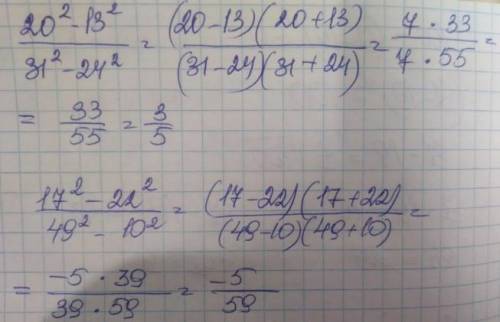 (20² - 13²)/(31² - 24²) = ((20-13)(20+13))/((31-24)(31+24)) = (7 · 33)/(7 · 55) =
= 33/55 = 3/5
(17² - 22²)/(49² - 10²) = ((17-22)(17+22))/((49-10)(49+10)) =
= (-5 · 39)/(39 · 59) = -5/59